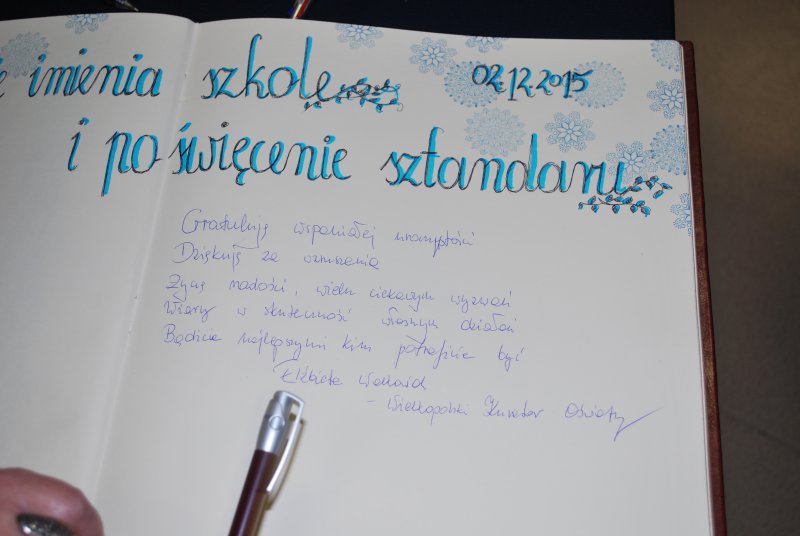 imienia szkole 02.12.2015
i poświęcenie sztandaru
Gratuluję wspaniałej uroczystości
Dziękuję za wzruszenia
Życzę radości, wielu ciekawych wyzwań
Wiary w skuteczność własnych działań
Bądźcie najlepszymi kim potraficie być
Elżbieta Walkowiak
- Wielkopolski Kurator Oświaty